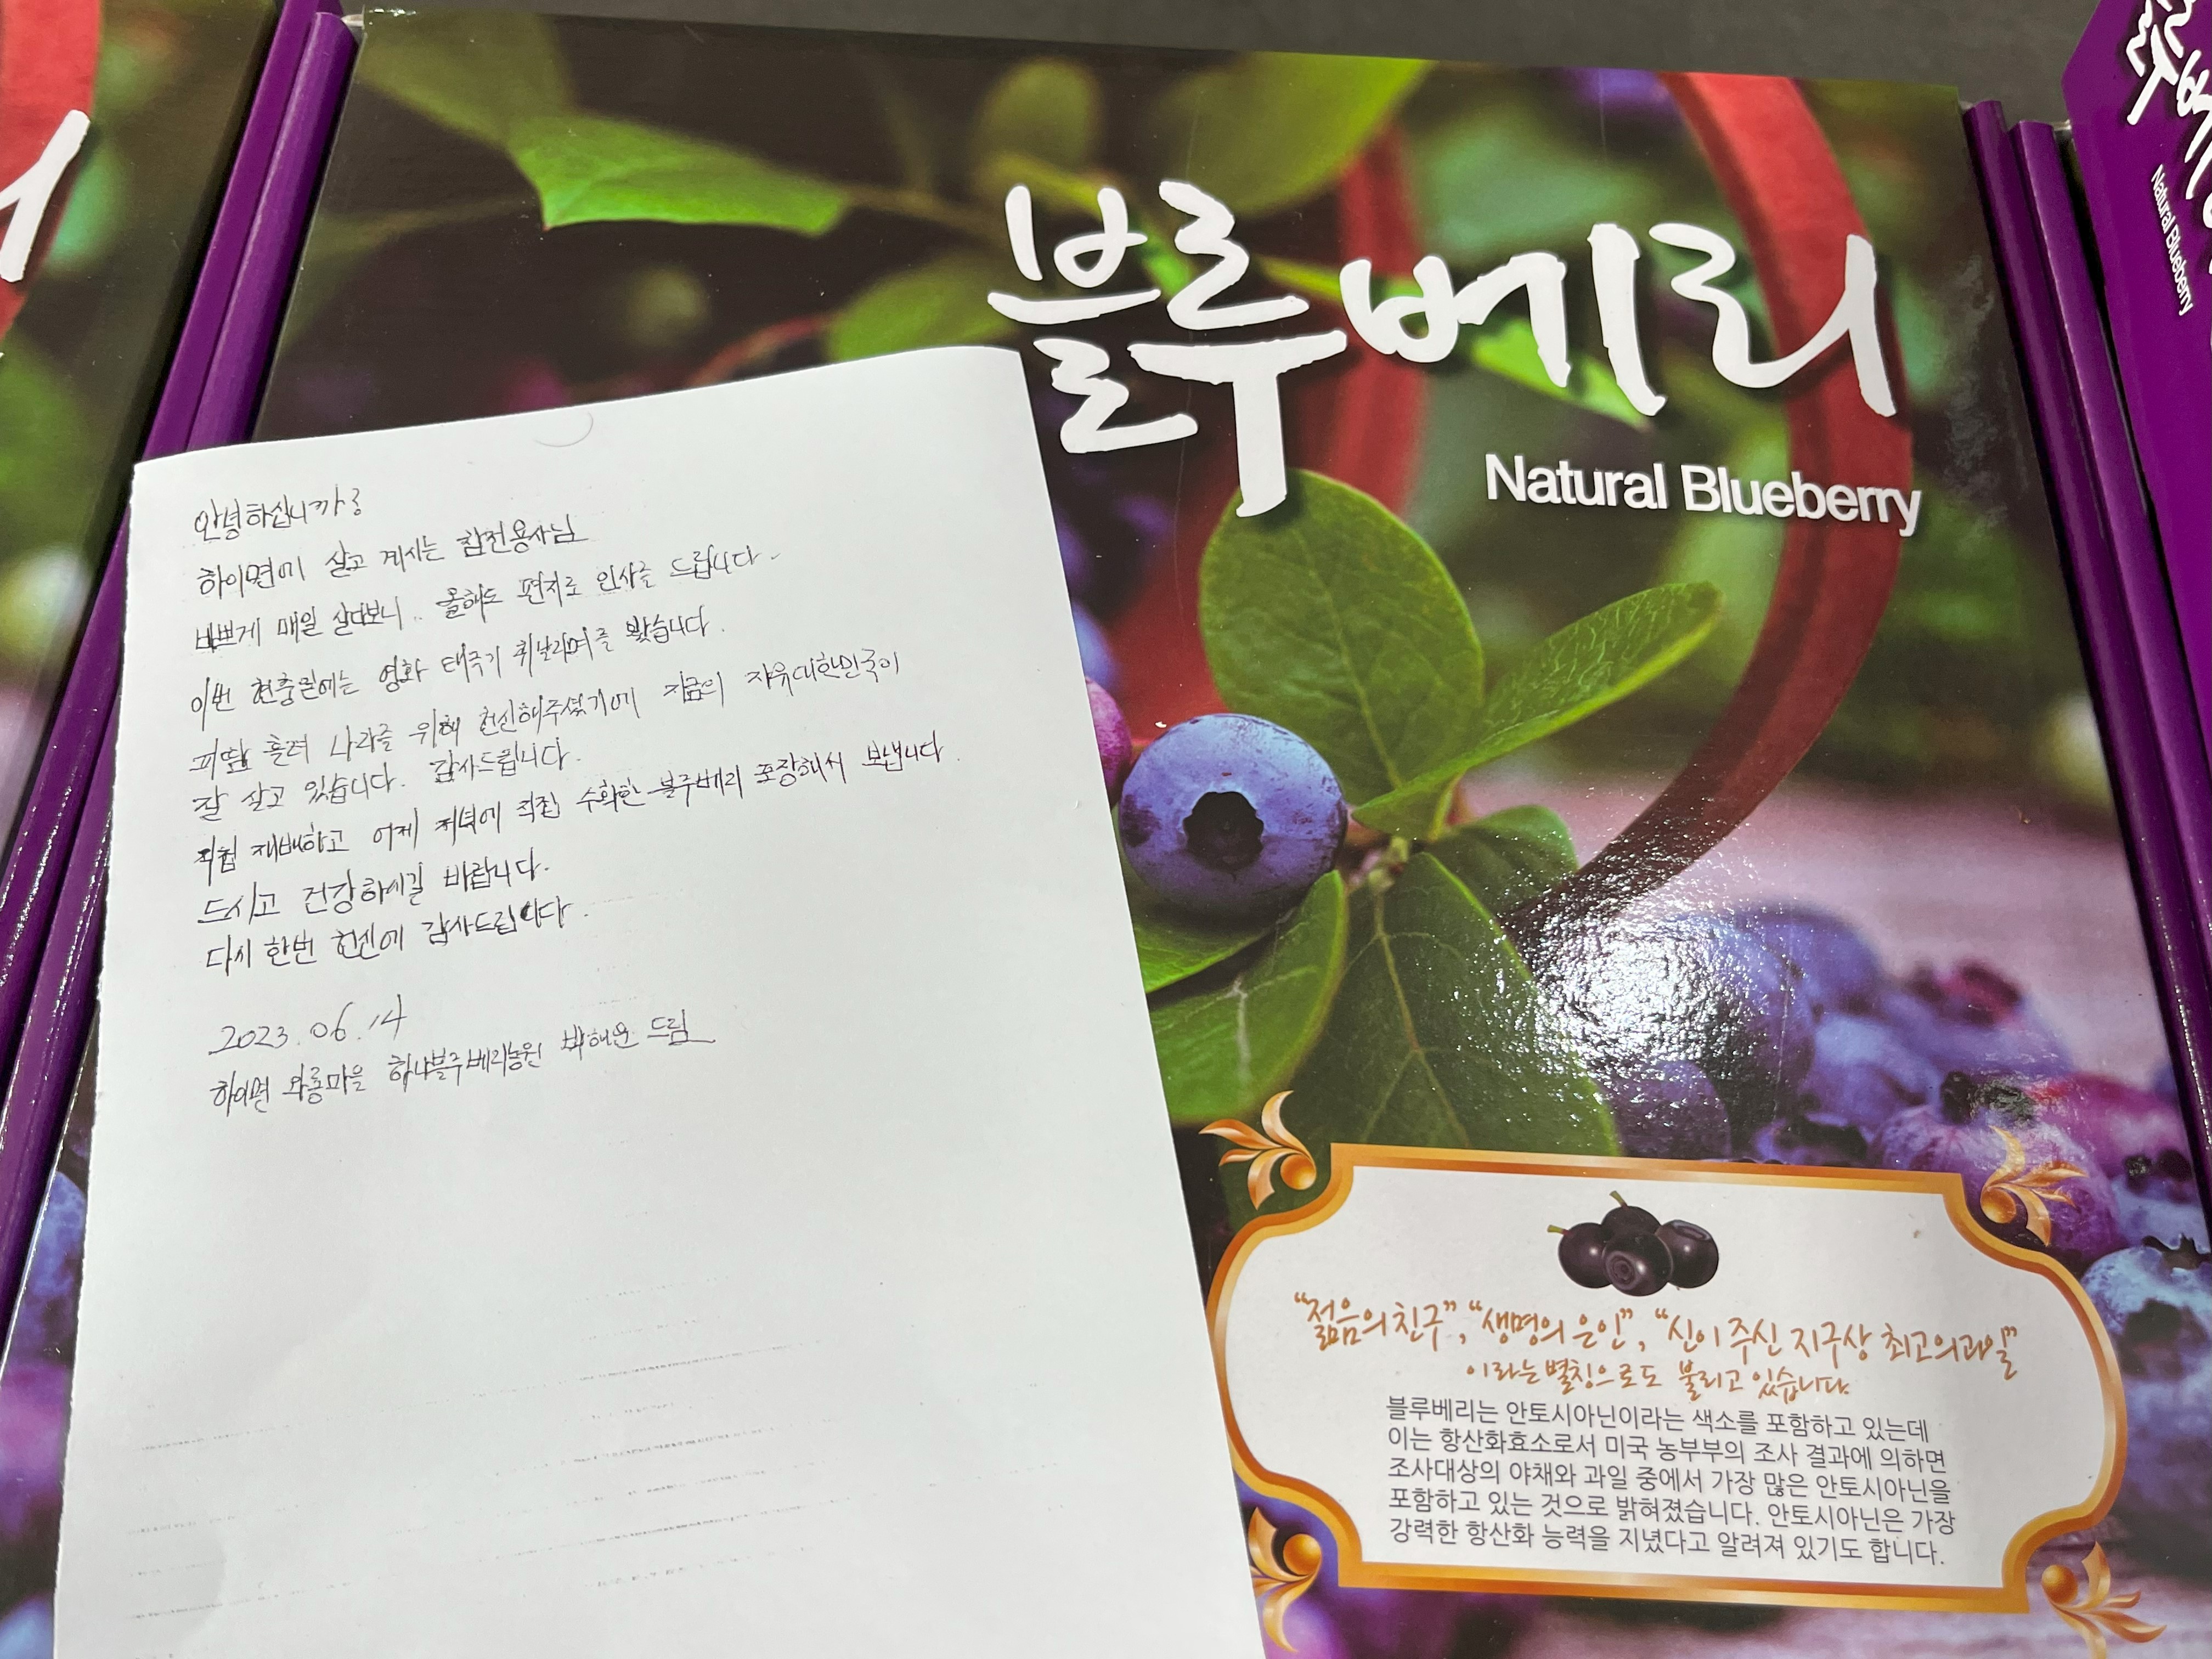 블루베리
Natural Blueberry
Natural Blueberry
안녕하십니까?
하이면에 살고 계시는 참전용사님
바쁘게 매일 살다보니.. 올해도 편지로 인사를 드립니다.
이번 현충일에는 영화 태극기 휘날리며를 봤습니다.
피땀 흘려 나라를 위해 헌신해주셨기에 지금의 자유대한민국이
잘 살고 있습니다. 감사드립니다.
직접 재배하고 어제 저녁에 직접 수확한 블루베리 포장해서 보냅니다.
드시고 건강하시길 바랍니다.
다시 한번 헌신에 감사드립니다.
2023.06.14
하이면 와룡마을 하나블루베리농원 박해운 드림
“젊음의 친구”, “생명의 은인”, “신이 주신 지구상 최고의과일”
이라는 별칭으로도 불리고 있습니다.
블루베리는 안토시아닌이라는 색소를 포함하고 있는데
이는 항산화효소로서 미국 농부부의 조사 결과에 의하면
조사대상의 야채와 과일 중에서 가장 많은 안토시아닌을
포함하고 있는 것으로 밝혀졌습니다. 안토시아닌은 가장
강력한 항산화 능력을 지녔다고 알려져 있기도 합니다.